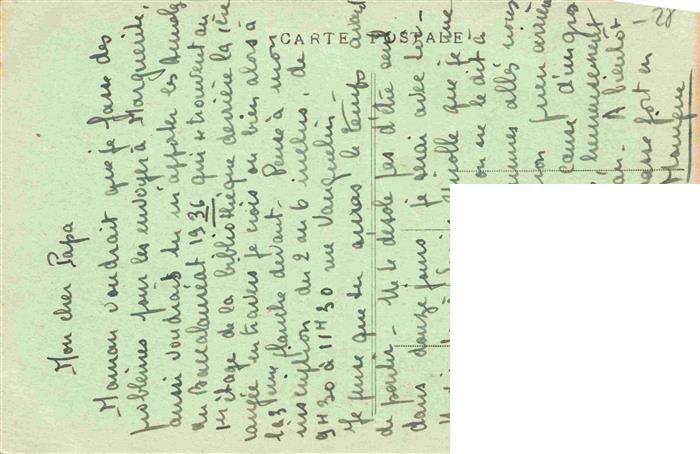 CARTE POSTALE
28
Mon cher Papa
Maman voudrait que je fasse des
problèmes pour les envoyer à Marguerite,
aussi voudrais tu m'apporter les Annales
du Baccalauréat 1936 qui se trouvent au
1er étage de la bibliothèque derrière la 1ère
rangée en travers je crois ou bien alors à
la 3 ème planche devant. Pense à mon
inscription du 2 au 6 inclus, de
9H30 à 11H30 rue Vauquelin -
Je pense que tu auras le temps avant
de partir - Ne te désole pas d'être seul
dans douze jours je serai avec toi -
que je
on me le dit à
sommes allés nous
cause d'un gros
heureusement
A bientôt
fort en